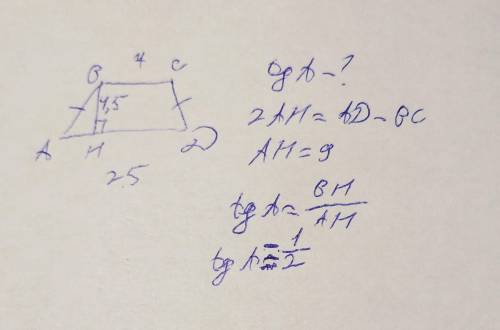 7
B C
4,5
A H D
25
tgA-?
2AH=AD-BC
AH=9
tgA=BH/AH
tgA=1/2